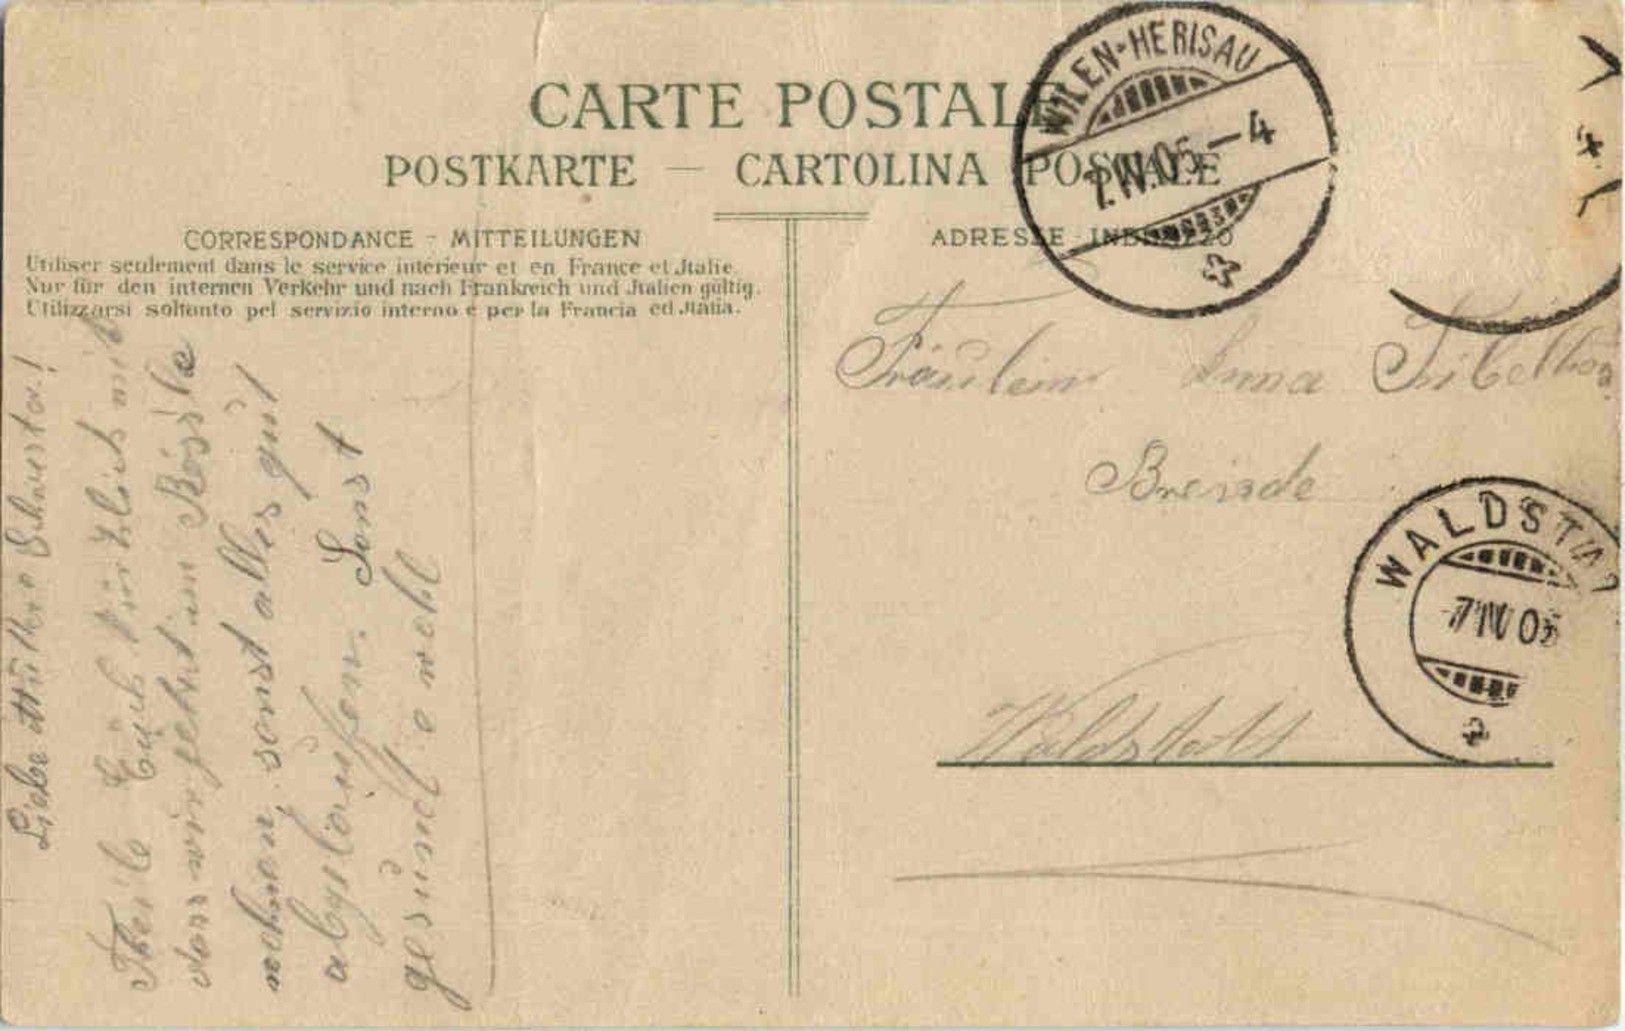 CARTE POSTALE
POSTKARTE — CARTOLINA POSTALE
CORRESPONDANCE - MITTEILUNGEN
Utiliser seulement dans le service intérieur et en France et Italie
Nur für den internen Verkehr und nach Frankreich und Italien gültig.
Utilizzarsi soltanto pel servizio interno e per la Francia ed Italia.
ADRESSE - INDIRIZZO
WILEN-HERISAU
7.IV.05 — 4
4
Fräulein Anna
Waldstatt
WALDSTA
7 IV 05
Liebe Mutter & Schwester!
Theile Euch kürzlich mit
dass wir jetzt im Rössle
wohnen, sonst alles gut
abgelaufen. Sonst
gesund & wohl